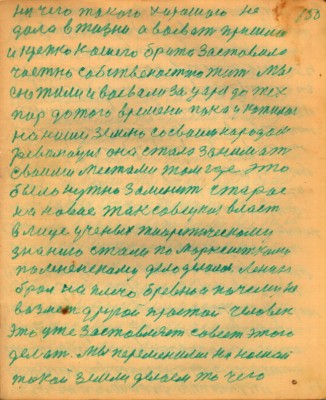 133
ни чего такого хорошого не
дала в жизни а воеват пришлос
и нужно нашего брата заставила
частно собствеността жит Мы
и жили и воевали за царя до тех
пор до того времени пока и
на нашу землю со своим народом
революция она стала занимат
своими местами там где это
было нужно заменит старое
на новое так советския власт
в лице ученых теоретическими
знанию стали по Марксистким
по ленинскому дело делат. Ленин
брал на плечо бревно а почему не
возмет другой простой человек
это уже заставляет совест этого
делат. Мы переменили на нашай
такой земли двоем то чего